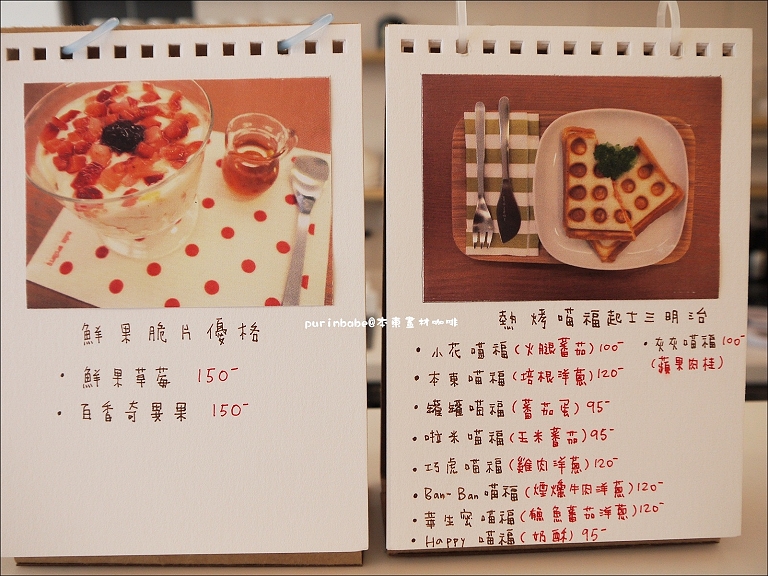 鮮果脆片優格
• 鮮果草莓 150-
• 百香奇異果 150-
purinbabe@本東畫材咖啡
熱烤喵福起士三明治
• 小花喵福(火腿蕃茄)100-
• 本東喵福(培根洋蔥)120-
• 罐罐喵福(蕃茄蛋)95-
• 啦米喵福(玉米蕃茄)95-
• 巧虎喵福(雞肉洋蔥)120-
• Ban-Ban喵福(煙燻牛肉洋蔥)120-
• 華生蜜喵福(鮪魚蕃茄洋蔥)120-
• Happy 喵福(奶酥)95-
• 夾夾喵福100-
(蘋果肉桂)